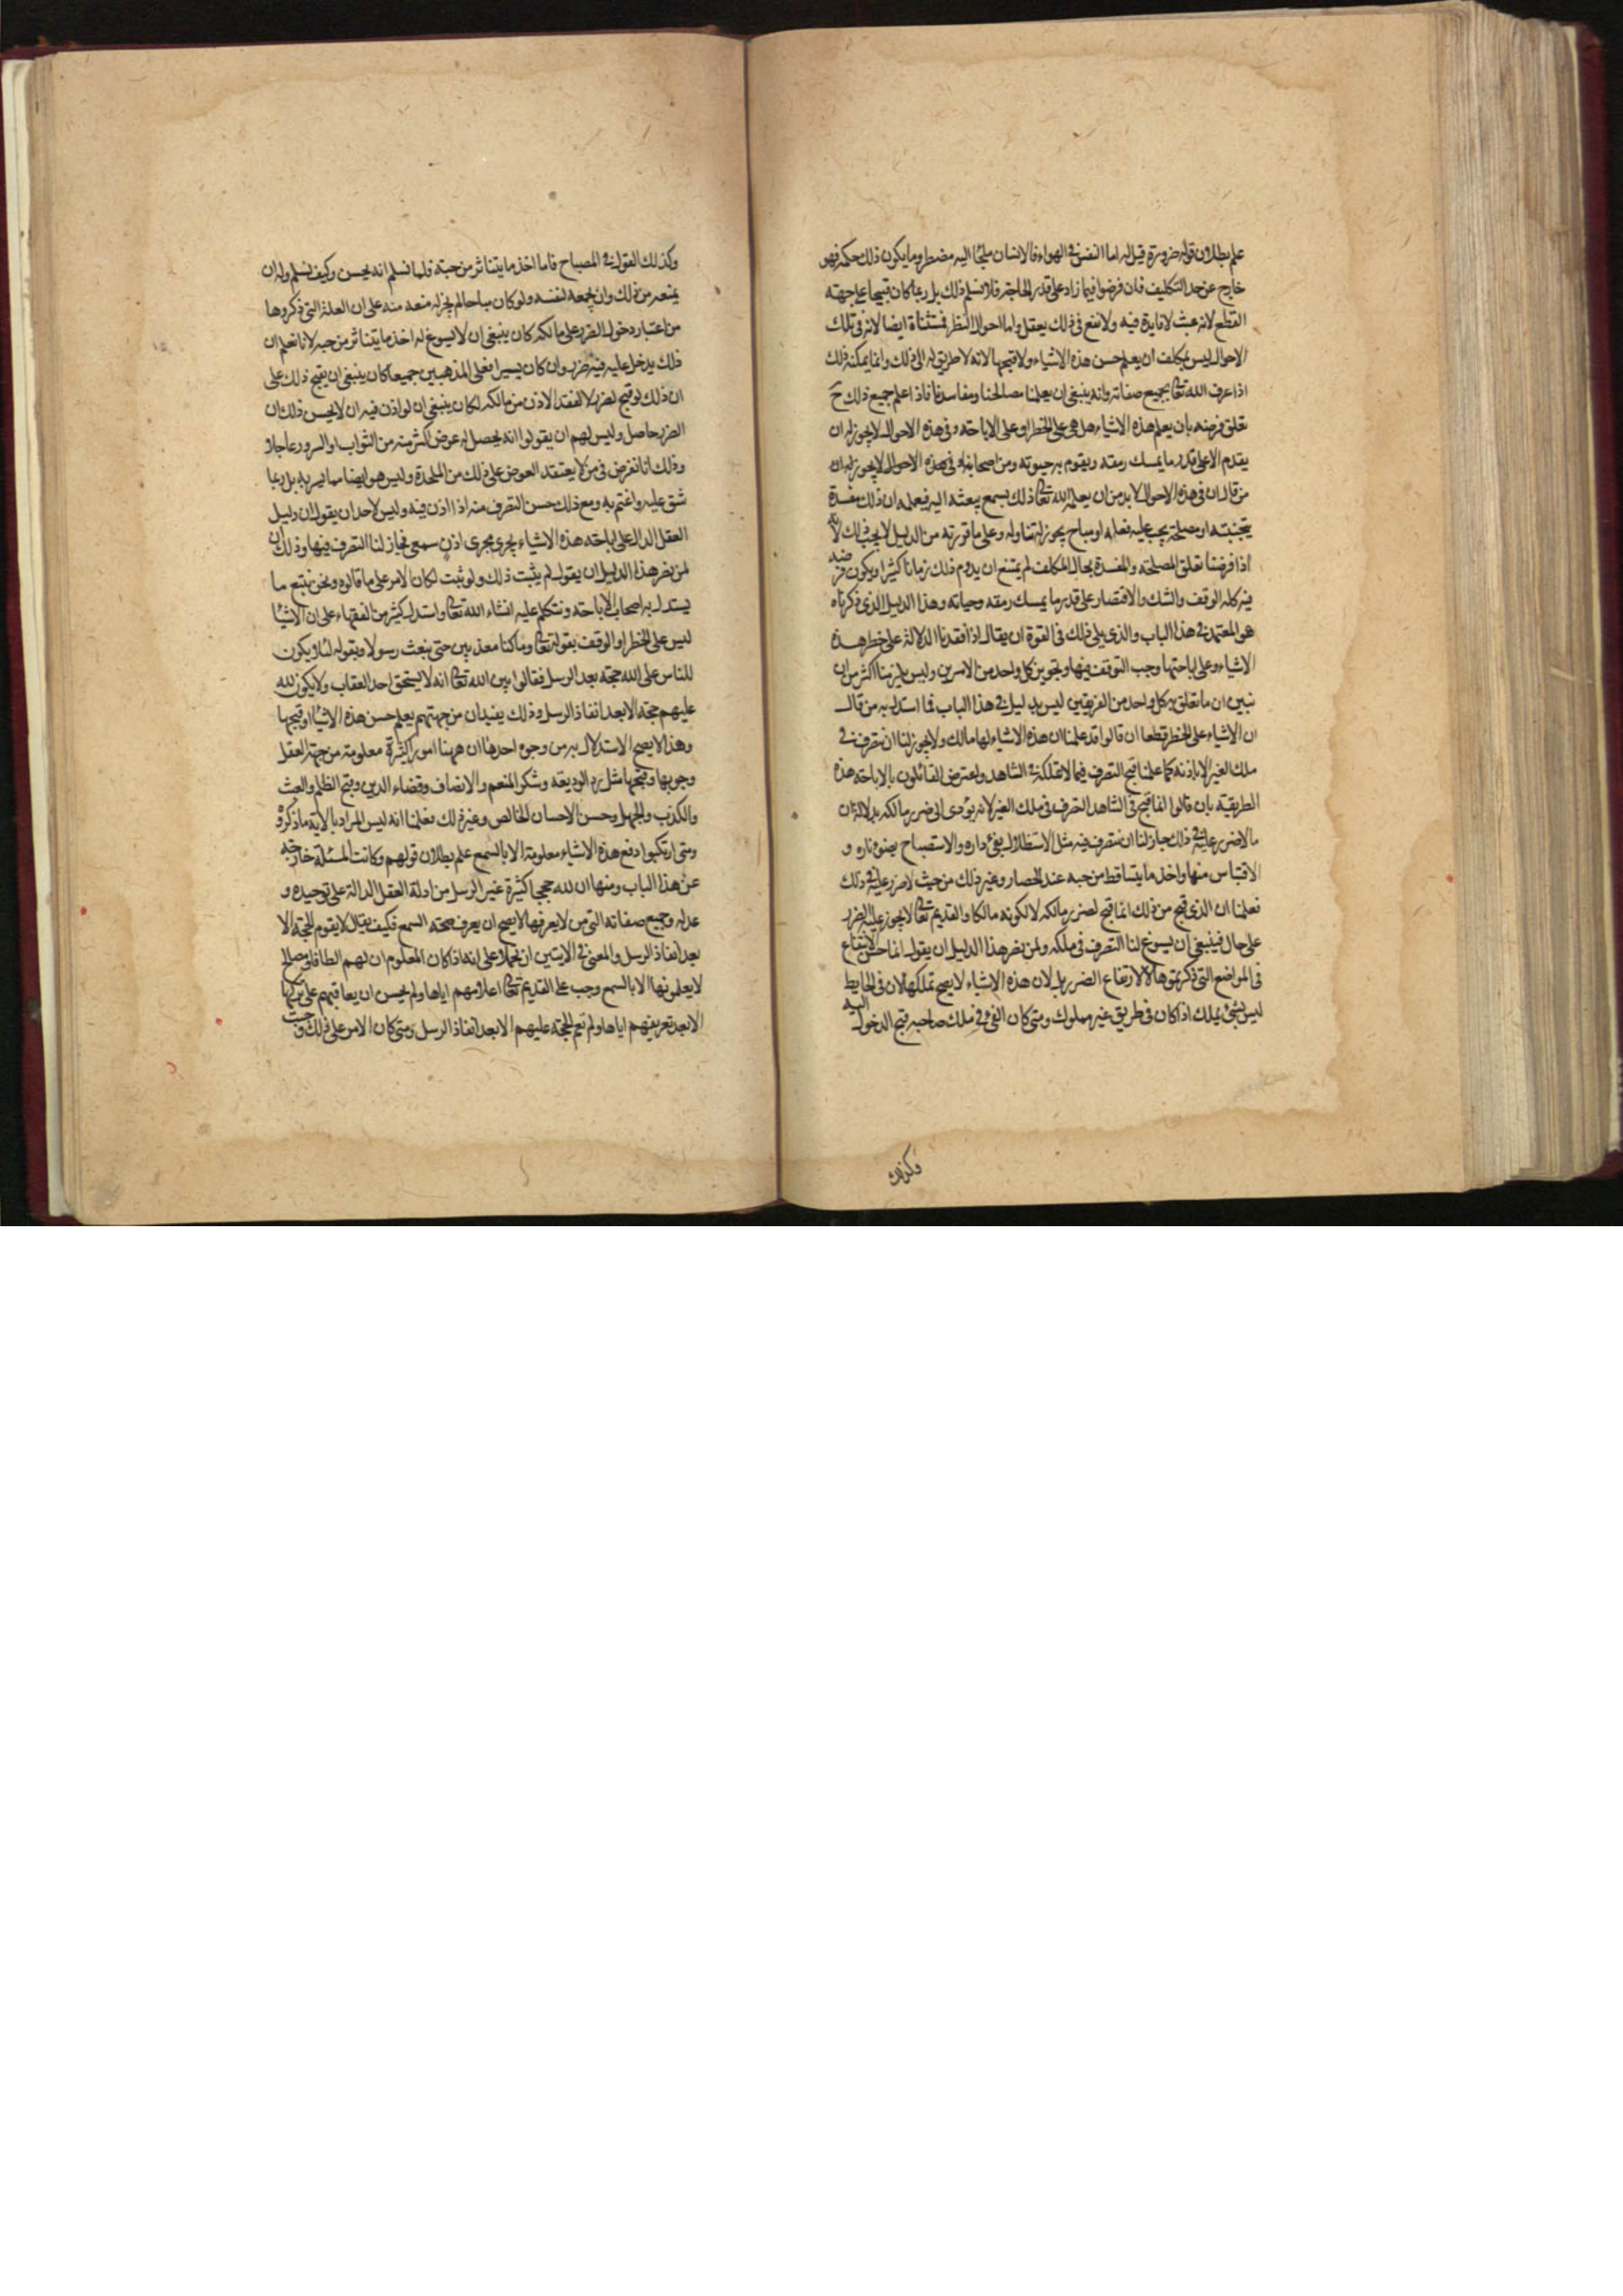 علم بطلان قوله ضرورة قيل له اما النفس فى الهواء فالانسان ملجأ اليه مضطر وما يكون ذلك حكمه فهو
خارج عن حد التكليف فان فرضوا فيما زاد على قدر الحاجة فلا نسلم ذلك بل ربما كان قبيحا على جهة
القطع لانه عبث لا فايدة فيه ولا نفع فى ذلك يعقل واما احوال النظر فمستثناة ايضا لانه فى تلك
الاحوال ليس بمكلف ان يعلم حسن هذه الاشياء ولا قبحها لانه لا طريق له الى ذلك وانما يمكنه ذلك
اذا عرف الله تعالى بجميع صفاته وانه ينبغى ان يعلمنا مصالحنا ومفاسدنا فاذا علم جميع ذلك ح
تعلق فرضه بان يعلم هذه الاشياء هل هى على الخطر او على الاباحة وفى هذه الاحوال لا يجوز له ان
يقدم الا على قدر ما يمسك رمقه ويقوم به حيوته ومن اصحابنا فى هذه الاحوال لا يجوز له ان
من قال ان فى هذه الاحوال لابد من ان يعلمه الله تعالى ذلك بسمع يبعثه اليه فيعلمه ان ذلك مفسدة
يتجنبه او مصلحة يجب عليه فعله او مباح يجوز له تناوله وعلى ما قررته من الدليل لا يجب ذلك لانه
اذا فرضنا تعلق المصلحة والمفسدة بحال المكلف لم يمتنع ان يدوم ذلك زمانا كثيرا ويكون فرضه
فيه كله الوقف والشك والاقتصار على قدر ما يمسك رمقه وحياته وهذا الدليل الذى ذكرناه
هو المعتمد فى هذا الباب والذى يلى ذلك فى القوة ان يقال اذا فقدنا الدلالة على خطر هذه
الاشياء وعلى اباحتها وجب التوقف فيها وتجويز كل واحد من الامرين وليس يلزمنا اكثر من ان
نبين ان ما تعلق به كل واحد من الفريقين ليس بدليل فى هذا الباب فما استدل به من قال
ان الاشياء على الخطر قطعا ان قالوا قد علمنا ان هذه الاشياء لها مالك ولا يجوز لنا ان نتصرف فى
ملك الغير الا باذنه كما علمنا قبح التصرف فيما لا نملكه فى الشاهد واعترض القائلون بالاباحة هذه
الطريقة بان قالوا انما قبح فى الشاهد التصرف فى ملك الغير لانه يؤدى الى ضرر مالكه بدلالة ان
ما لا ضرر عليه فى ذلك جاز لنا ان نتصرف فيه مثل الاستظلال بفئ داره والاستصباح بضوء ناره و
الاقتباس منها واخذ ما يتساقط من حبه عند الحصاد وغير ذلك من حيث لا ضرر عليه فى ذلك
فعلمنا ان الذى قبح من ذلك انما قبح لضرر مالكه لا لكونه مالكا والقديم تعالى لا يجوز عليه الضرر
على حال فينبغى ان يسوغ لنا التصرف فى ملكه ولمن نصر هذا الدليل ان يقول انما حسن الانتفاع
فى المواضع التى ذكرتموها لا لارتفاع الضرر بل لان هذه الاشياء لا يصح تملكها لان فى الحايط
ليس بشئ يملك اذا كان فى طريق غير مملوك ومتى كان الفئ فى ملك صاحبه قبح الدخول اليه
وكذلك
وكذلك القول فى المصباح فاما اخذ ما يتناثر من حبته فلا نسلم انه يحسن وكيف نسلم وله ان
يمنعه من ذلك وان يجمعه لنفسه ولو كان مباحا لم يجز له منعه منه على ان العلة التى ذكروها
من اعتبار دخول الضرر على مالكه كان ينبغى ان لا يسوغ له اخذ ما يتناثر من حبه لانا نعلم ان
ذلك يدخل عليه فيه ضرر وان كان يسيرا فعلى المذهبين جميعا كان ينبغى ان يقبح ذلك على
ان ذلك لو قبح لضرر لا لفقد الاذن من مالكه لكان ينبغى ان لو اذن فيه ان لا يحسن ذلك لان
الضرر حاصل وليس لهم ان يقولوا انه يحصل له عوض اكثر منه من الثواب او السرور عاجلا
وذلك انا نفرض فى من لا يعتقد العوض على ذلك من الملحدة وليس هو ايضا مما يسر به بل ربما
شق عليه واغتم به ومع ذلك حسن التصرف منه اذا اذن فيه وليس لاحد ان يقول ان دليل
العقل الدال على اباحة هذه الاشياء يجرى مجرى اذن سمعى فجاز لنا التصرف فيها وذلك ان
لمن نصر هذا الدليل ان يقول لم يثبت ذلك ولو ثبت لكان الامر على ما قالوه ونحن نتبع ما
يستدل به اصحاب الاباحة ونتكلم عليه انشاء الله تعالى واستدل كثير من الفقهاء على ان الاشيا
ليس على الخطر او الوقف بقوله تعالى وما كنا معذبين حتى نبعث رسولا وبقوله لئلا يكون
للناس على الله حجة بعد الرسل فقالوا بين الله تعالى انه لا يستحق احد العقاب ولا يكون لله
عليهم حجة الا بعد انفاذ الرسل وذلك يفيد ان من جهتهم يعلم حسن هذه الاشيا او قبحها
وهذا لا يصح الاستدلال به من وجوه احدها ان ههنا امورا كثيرة معلومة من جهة العقل
وجوبها وقبحها مثل رد الوديعة وشكر المنعم والانصاف وقضاء الدين وقبح الظلم والعبث
والكذب والجهل وحسن الاحسان الخالص وغير ذلك فعلمنا انه ليس المراد بالاية ما ذكروه
ومتى ارتكبوا دفع هذه الاشياء معلومة الا بالسمع علم بطلان قولهم وكانت المسئلة خارجة
عن هذا الباب ومنها ان لله حججا كثيرة غير الرسل من ادلة العقل الدالة على توحيده و
عدله وجميع صفاته التى من لا يعرفها لا يصح ان يعرف صحة السمع فكيف يقال لا يقوم الحجة الا
بعد انفاذ الرسل والمعنى فى الايتين ان نحملا على انه اذا كان المعلوم ان لهم الطافا ومصالح
لا يعلمونها الا بالسمع وجب على القديم تعالى اعلامهم اياها ولم يحسن ان يعاقبهم على تركها
الا بعد تعريفهم اياها ولم تقم الحجة عليهم الا بعد انفاذ الرسل ومتى كان الامر على ذلك وجبت